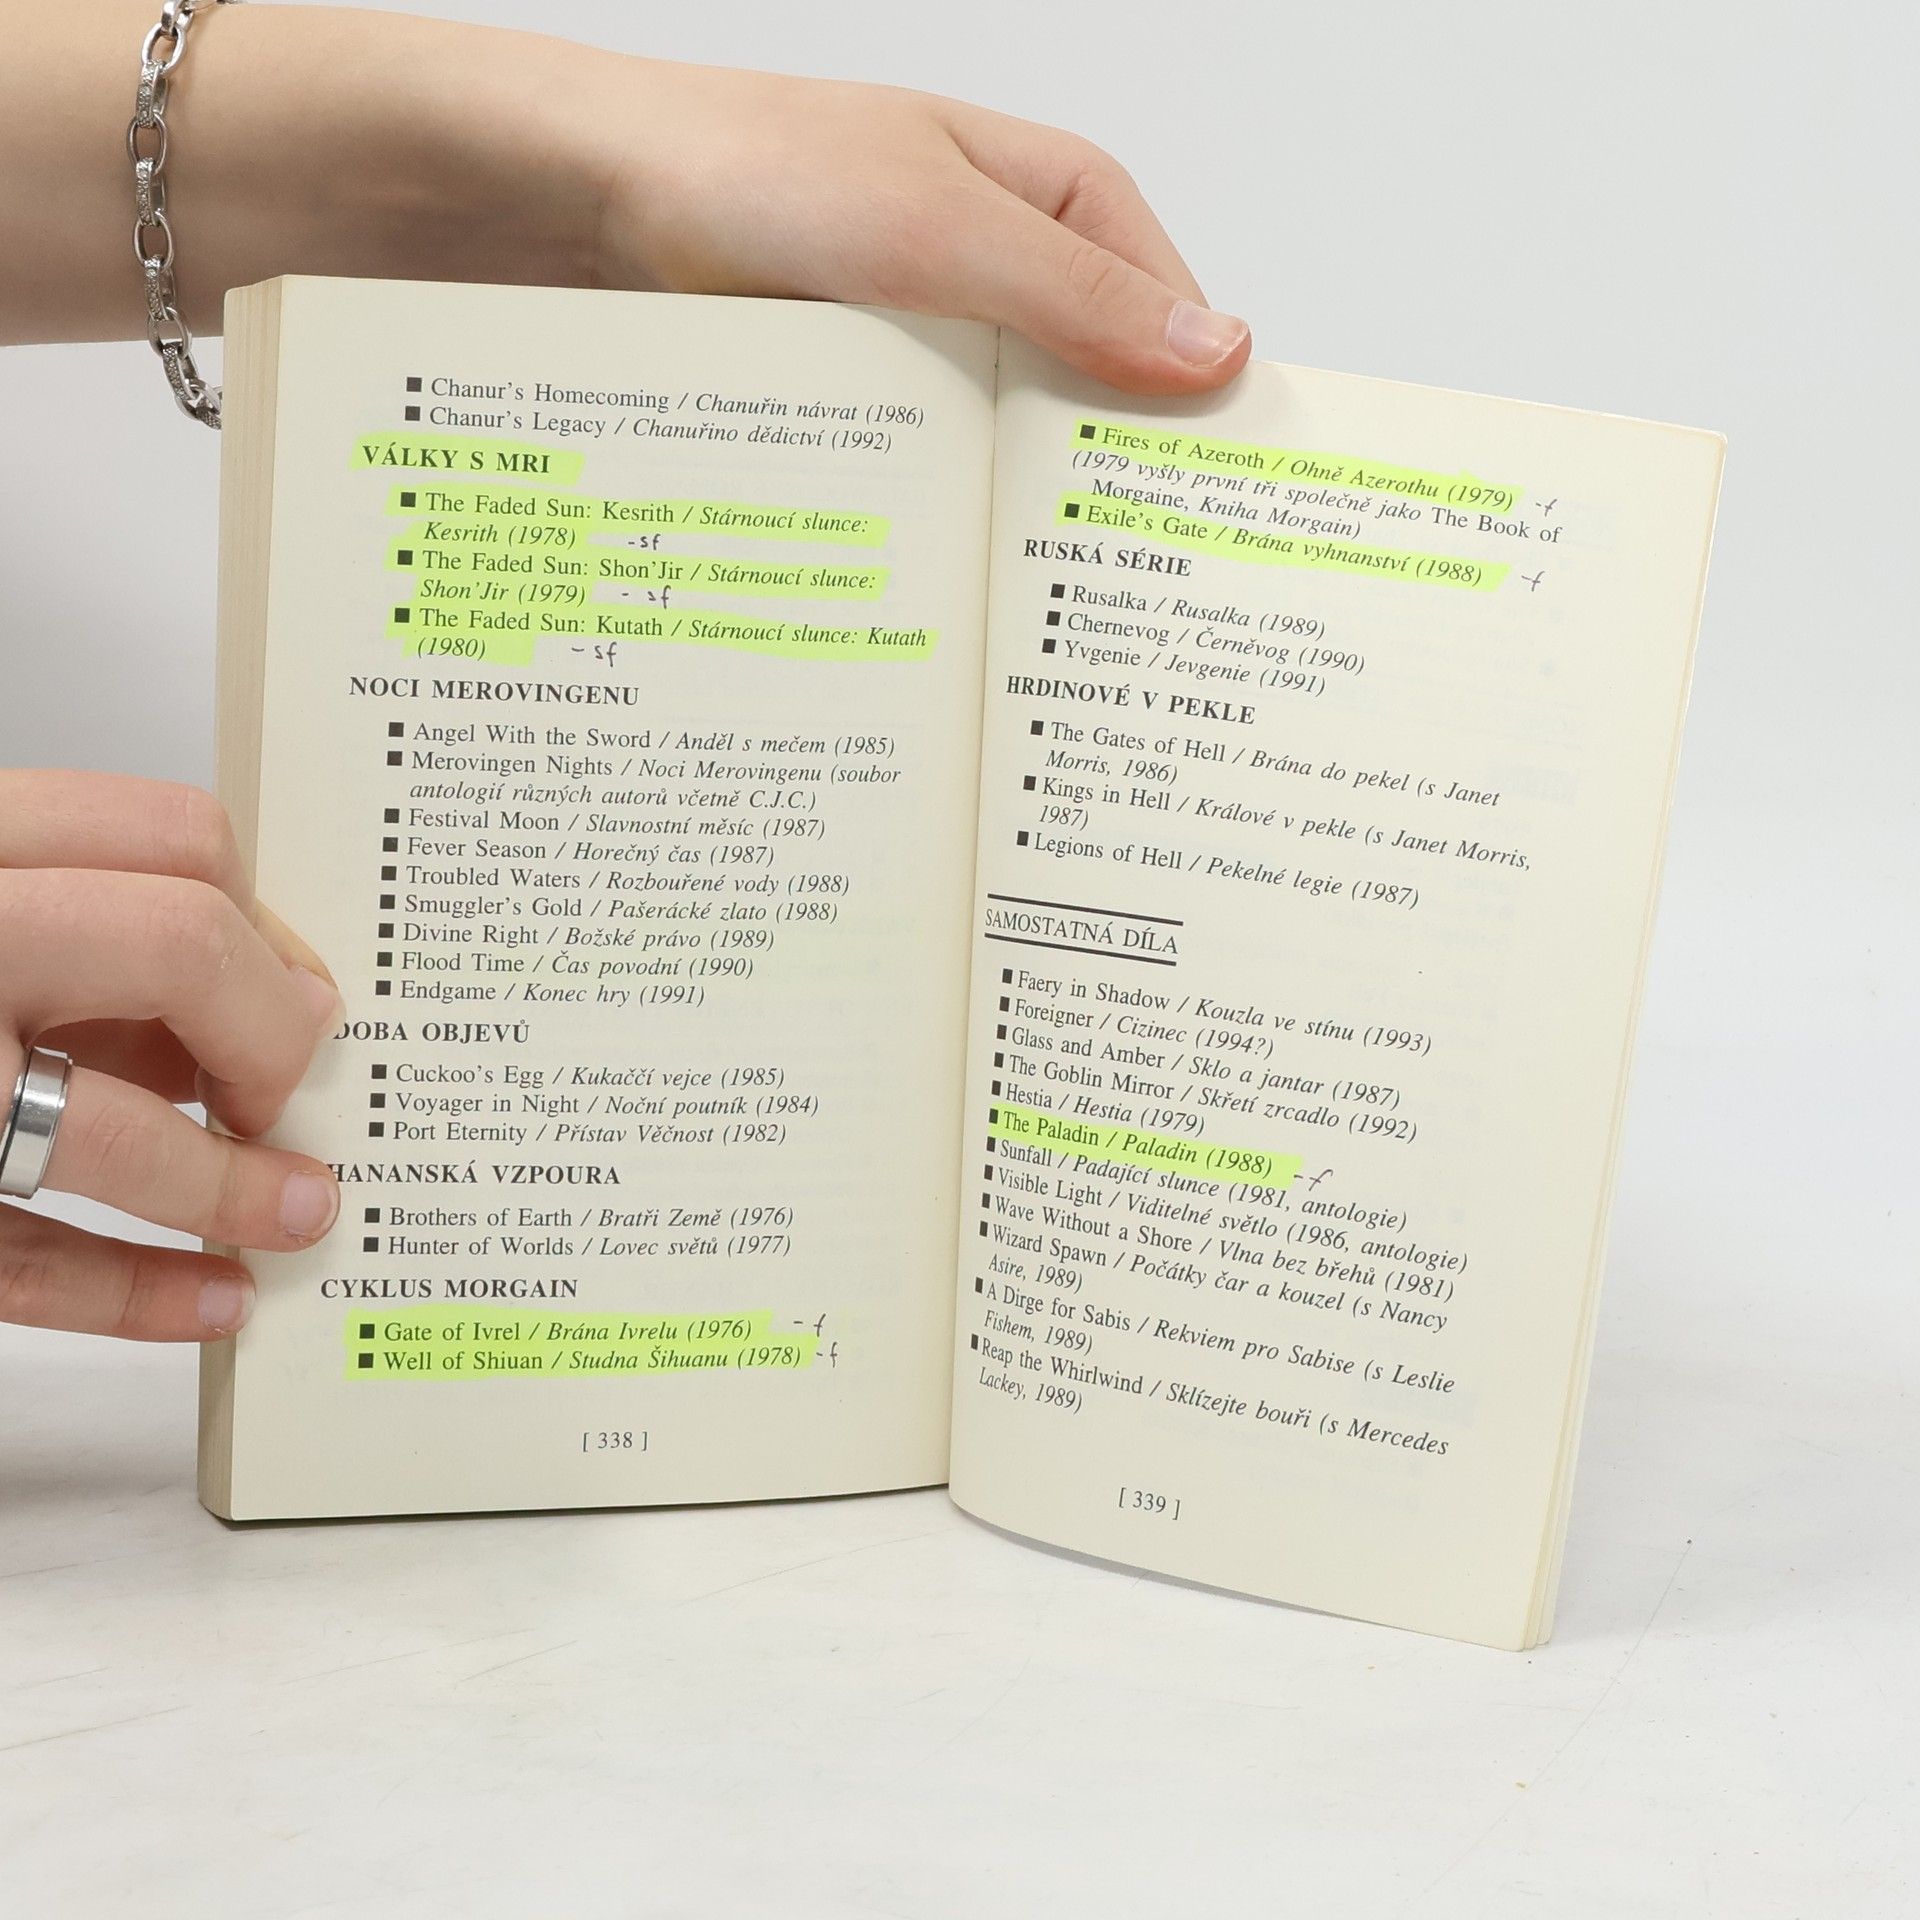 ■ Chanur's Homecoming / Chanuřin návrat (1986)
■ Chanur's Legacy / Chanuřino dědictví (1992)
VÁLKY S MRI
■ The Faded Sun: Kesrith / Stárnoucí slunce:
Kesrith (1978) -sf
■ The Faded Sun: Shon'Jir / Stárnoucí slunce:
Shon'Jir (1979) - sf
■ The Faded Sun: Kutath / Stárnoucí slunce: Kutath
(1980) - sf
NOCI MEROVINGENU
■ Angel With the Sword / Anděl s mečem (1985)
■ Merovingen Nights / Noci Merovingenu (soubor
antologií různých autorů včetně C.J.C.)
■ Festival Moon / Slavnostní měsíc (1987)
■ Fever Season / Horečný čas (1987)
■ Troubled Waters / Rozbouřené vody (1988)
■ Smuggler's Gold / Pašerácké zlato (1988)
■ Divine Right / Božské právo (1989)
■ Flood Time / Čas povodní (1990)
■ Endgame / Konec hry (1991)
DOBA OBJEVŮ
■ Cuckoo's Egg / Kukaččí vejce (1985)
■ Voyager in Night / Noční poutník (1984)
■ Port Eternity / Přístav Věčnost (1982)
HANANSKÁ VZPOURA
■ Brothers of Earth / Bratři Země (1976)
■ Hunter of Worlds / Lovec světů (1977)
CYKLUS MORGAIN
■ Gate of Ivrel / Brána Ivrelu (1976) - f
■ Well of Shiuan / Studna Šihuanu (1978) - f
[ 338 ]
■ Fires of Azeroth / Ohně Azerothu (1979) - f
(1979 vyšly první tři společně jako The Book of
Morgaine, Kniha Morgain)
■ Exile's Gate / Brána vyhnanství (1988) - f
RUSKÁ SÉRIE
■ Rusalka / Rusalka (1989)
■ Chernevog / Černěvog (1990)
■ Yvgenie / Jevgenie (1991)
HRDINOVÉ V PEKLE
■ The Gates of Hell / Brána do pekel (s Janet
Morris, 1986)
■ Kings in Hell / Králové v pekle (s Janet Morris,
1987)
■ Legions of Hell / Pekelné legie (1987)
SAMOSTATNÁ DÍLA
■ Faery in Shadow / Kouzla ve stínu (1993)
■ Foreigner / Cizinec (1994?)
■ Glass and Amber / Sklo a jantar (1987)
■ The Goblin Mirror / Skřetí zrcadlo (1992)
■ Hestia / Hestia (1979)
■ The Paladin / Paladin (1988) - f
■ Sunfall / Padající slunce (1981, antologie)
■ Visible Light / Viditelné světlo (1986, antologie)
■ Wave Without a Shore / Vlna bez břehů (1981)
■ Wizard Spawn / Počátky čar a kouzel (s Nancy
Asire, 1989)
■ A Dirge for Sabis / Rekviem pro Sabise (s Leslie
Fishem, 1989)
■ Reap the Whirlwind / Sklízejte bouři (s Mercedes
Lackey, 1989)
[ 339 ]